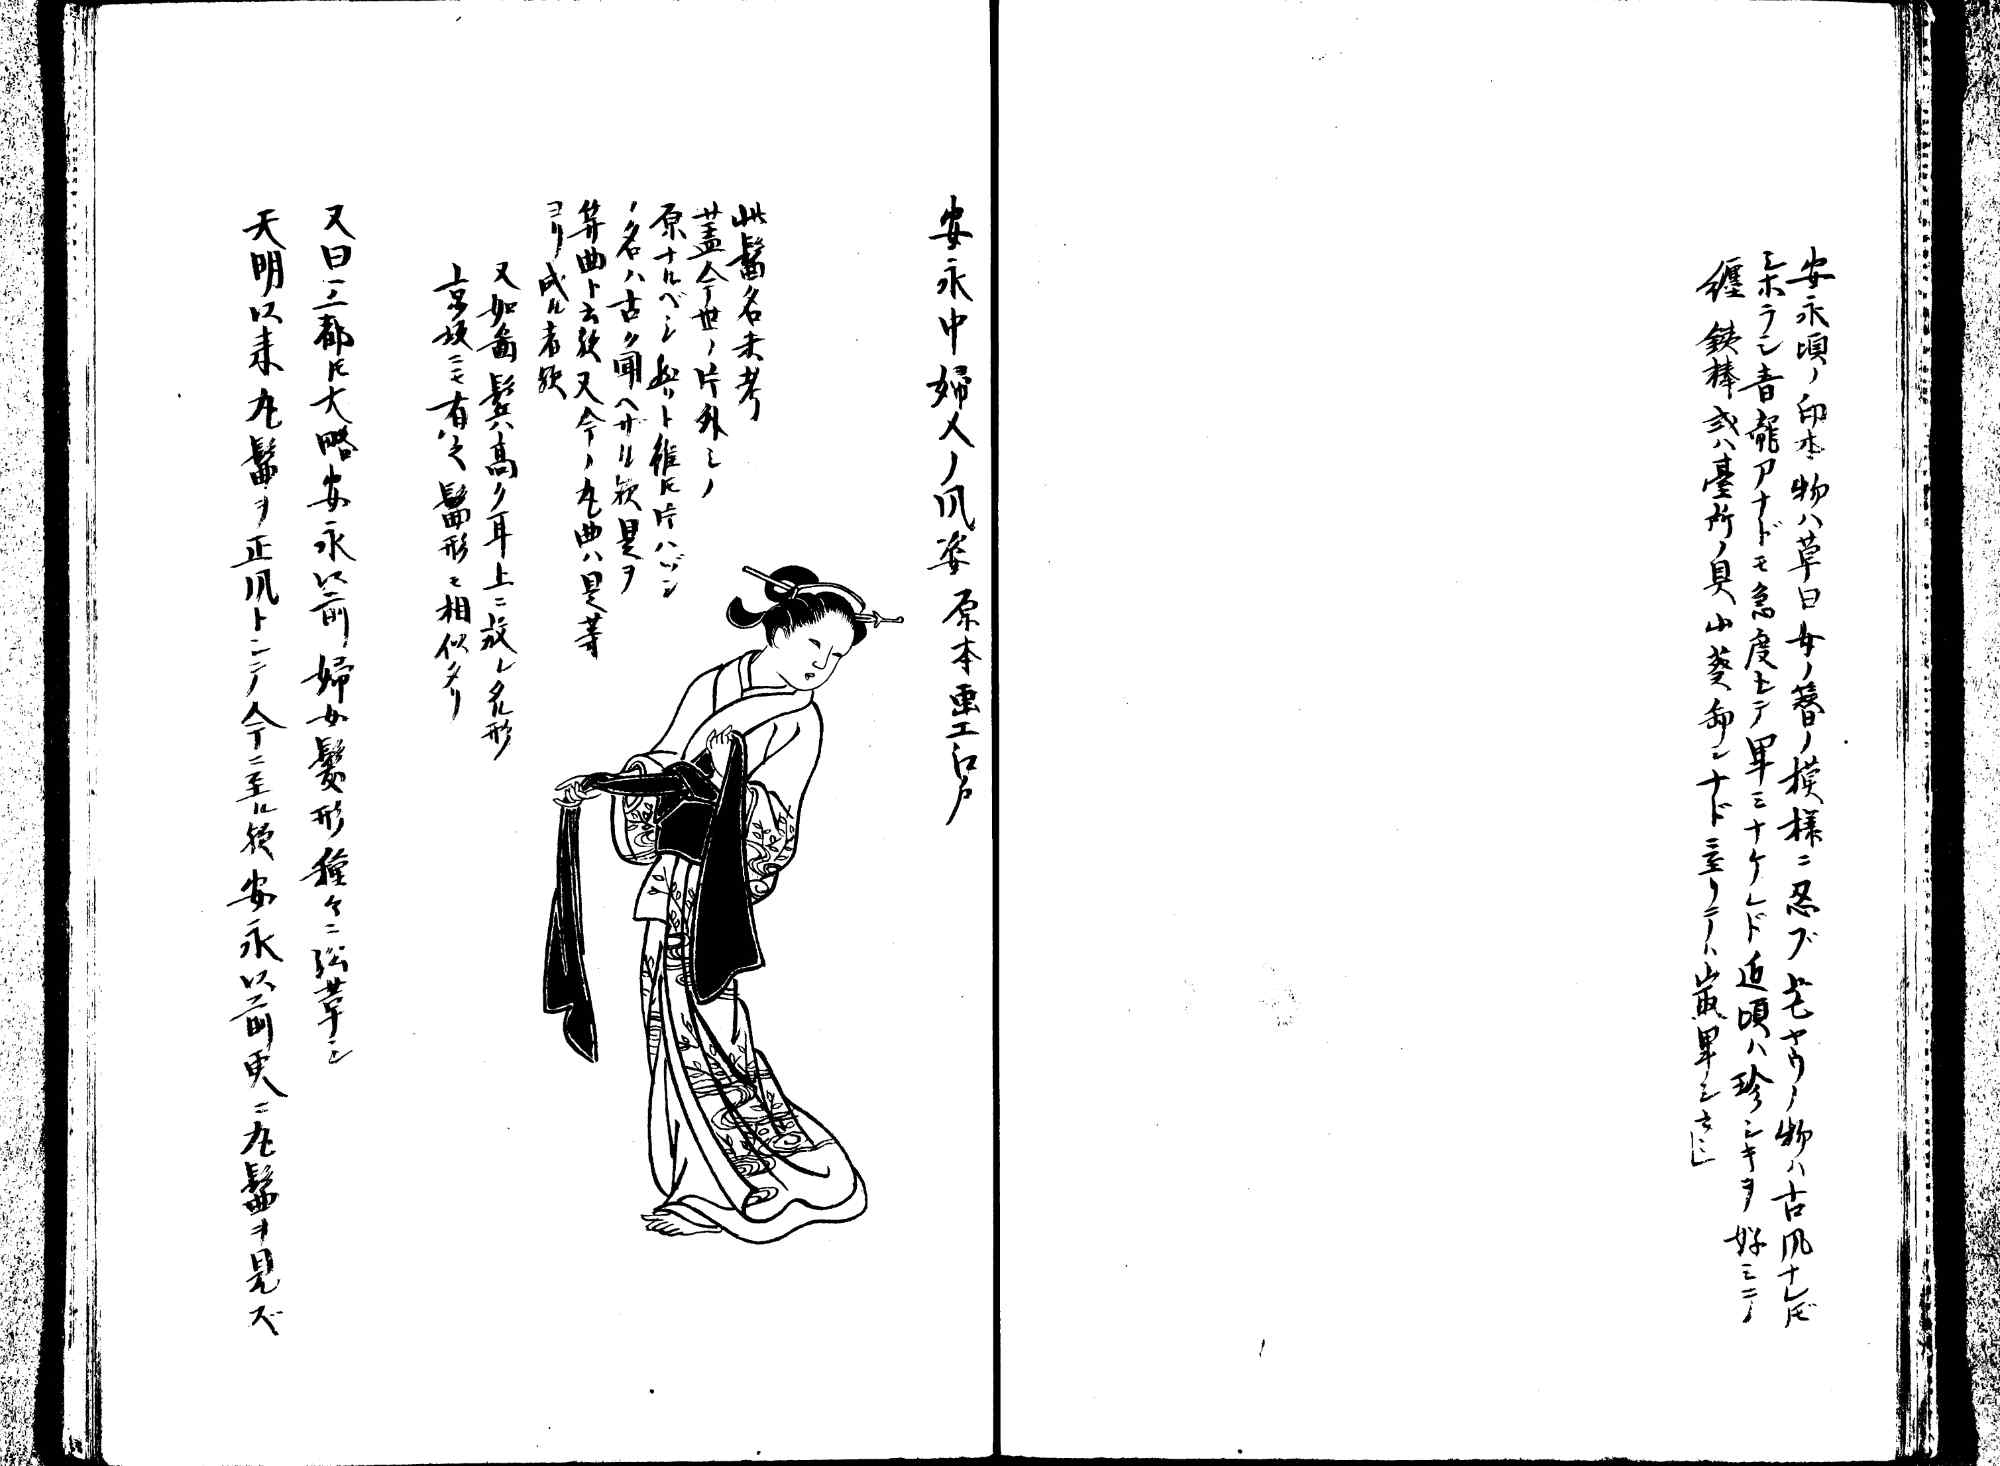 安永頃ノ印本物ハ草曰女ノ簪ノ模様ニ忍ブモヤウノ物ハ古風ナレ𪜈
シホラシ音龍アナドモ急度上テ畢ミナケレド近頃ハ珍シキヲ好ミニノ
纏銕棒或ハ臺所ノ貝山葵卸シナドニ至リ
安永中婦人ノ風姿 原本画工江戸
此髷名未考
蓋今世ノ片外シノ
原ナルベシ然リト雖𪜈片ハヅシ
ノ名ハ古ク聞ヘザル歟是ヲ
笄曲ト云歟又今ノ丸曲ハ是等
ヨリ成ル者歟
又如図鬂ハ高ク耳上ニ放レタル形
京坂ニモ有之髷形モ相似タリ
又曰三都𪜈大略安永以前婦女髪形種々ニ沿革シ
天明以来丸髷ヲ正風トシテ今ニ至ル歟安永以前更ニ丸髷ヲ見ズ